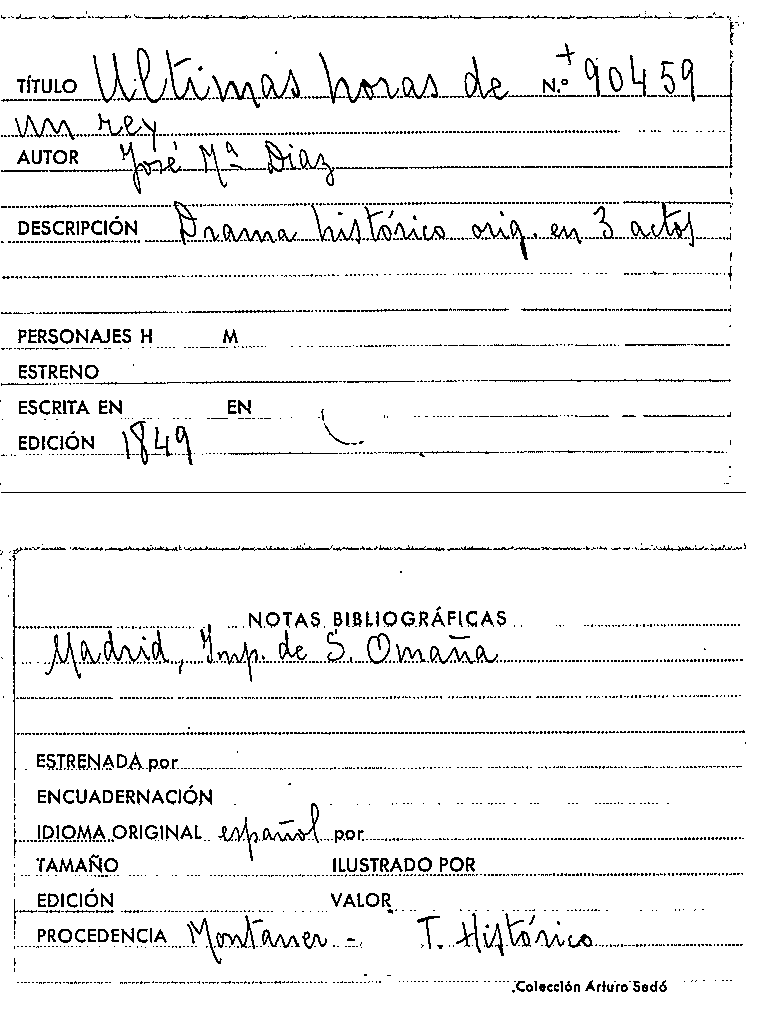 TÍTULO Ultimas horas de N.º + 90459
un rey
AUTOR José Mª Diaz
DESCRIPCIÓN Drama histórico orig. en 3 actos
PERSONAJES H M
ESTRENO
ESCRITA EN EN
EDICIÓN 1849
NOTAS BIBLIOGRÁFICAS
Madrid, Imp. de S. Omaña
ESTRENADA por
ENCUADERNACIÓN
IDIOMA ORIGINAL español por
TAMAÑO ILUSTRADO POR
EDICIÓN VALOR
PROCEDENCIA Montaner - T. Histórico
Colección Arturo Sedó